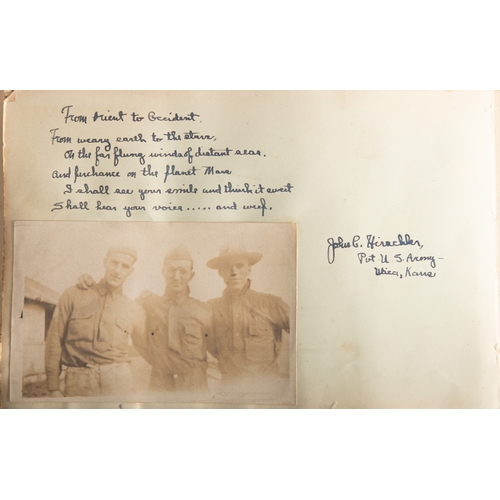 From Orient to Occident,
From weary earth to the stars,
On the far flung winds of distant seas.
And perchance on the planet Mars
I shall see your smile and think it sweet
Shall hear your voice ..... and weep.
John C. Hirschler,
Pvt U S. Army -
Utica, Kans